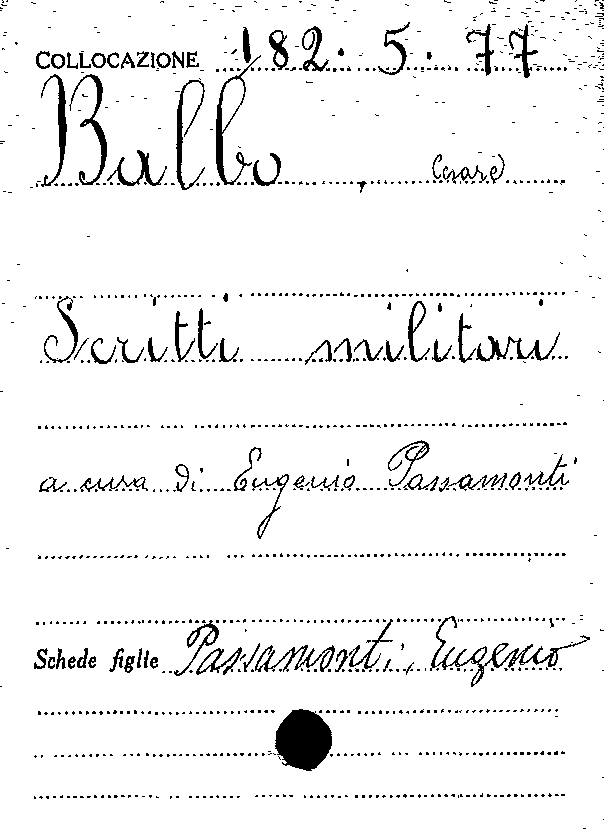 COLLOCAZIONE 182. 5. 77
Balbo, Cesare
Scritti militari
a cura di Eugenio Passamonti
Schede figlie Passamonti, Eugenio